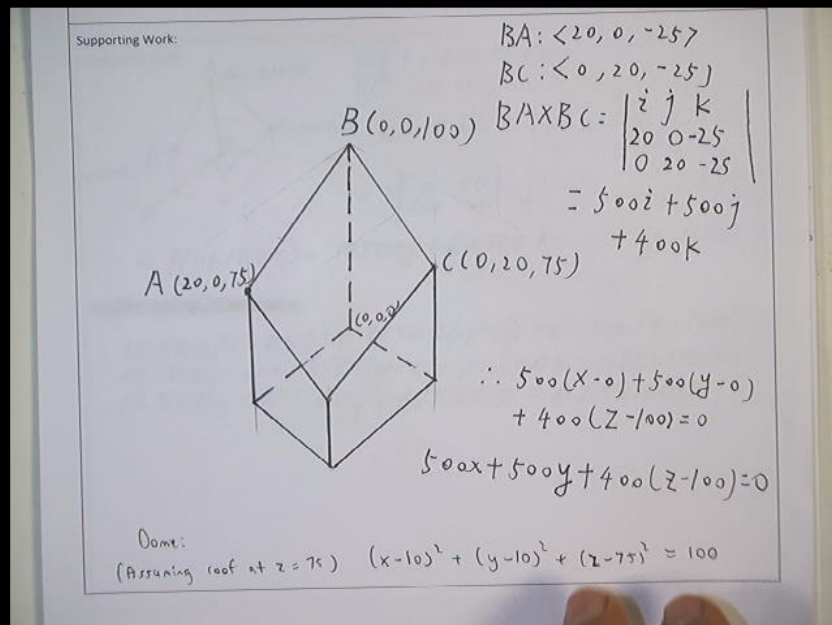 Supporting Work:
BA: <20, 0, -25>
BC: <0, 20, -25]
BAXBC = | i j k |
20 0 -25
0 20 -25
= 500i + 500j
+ 400k
B(0,0,100)
A (20,0,75)
C(0,20,75)
(0,0,0)
∴ 500(x-0) + 500(y-0)
+ 400(z-100) = 0
500x + 500y + 400(z-100) = 0
Dome:
(Assuming roof at z = 75) (x-10)² + (y-10)² + (z-75)² = 100